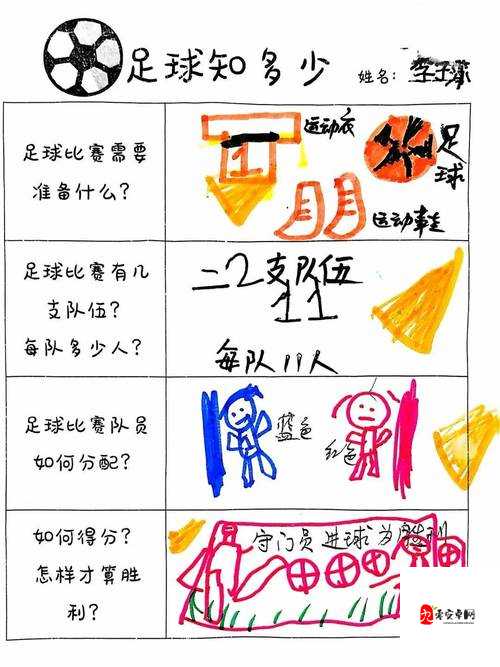 足球知多少
姓名:李子
足球比赛需要
准备什么?
运动衣
足
球
运动鞋
足球比赛有几
支队伍?
每队多少人?
二2支队伍
11
每队11人
足球比赛队员
如何分配?
蓝色
红色
如何得分?
怎样才算胜
利?
守门员 进球为胜利
零安卓网